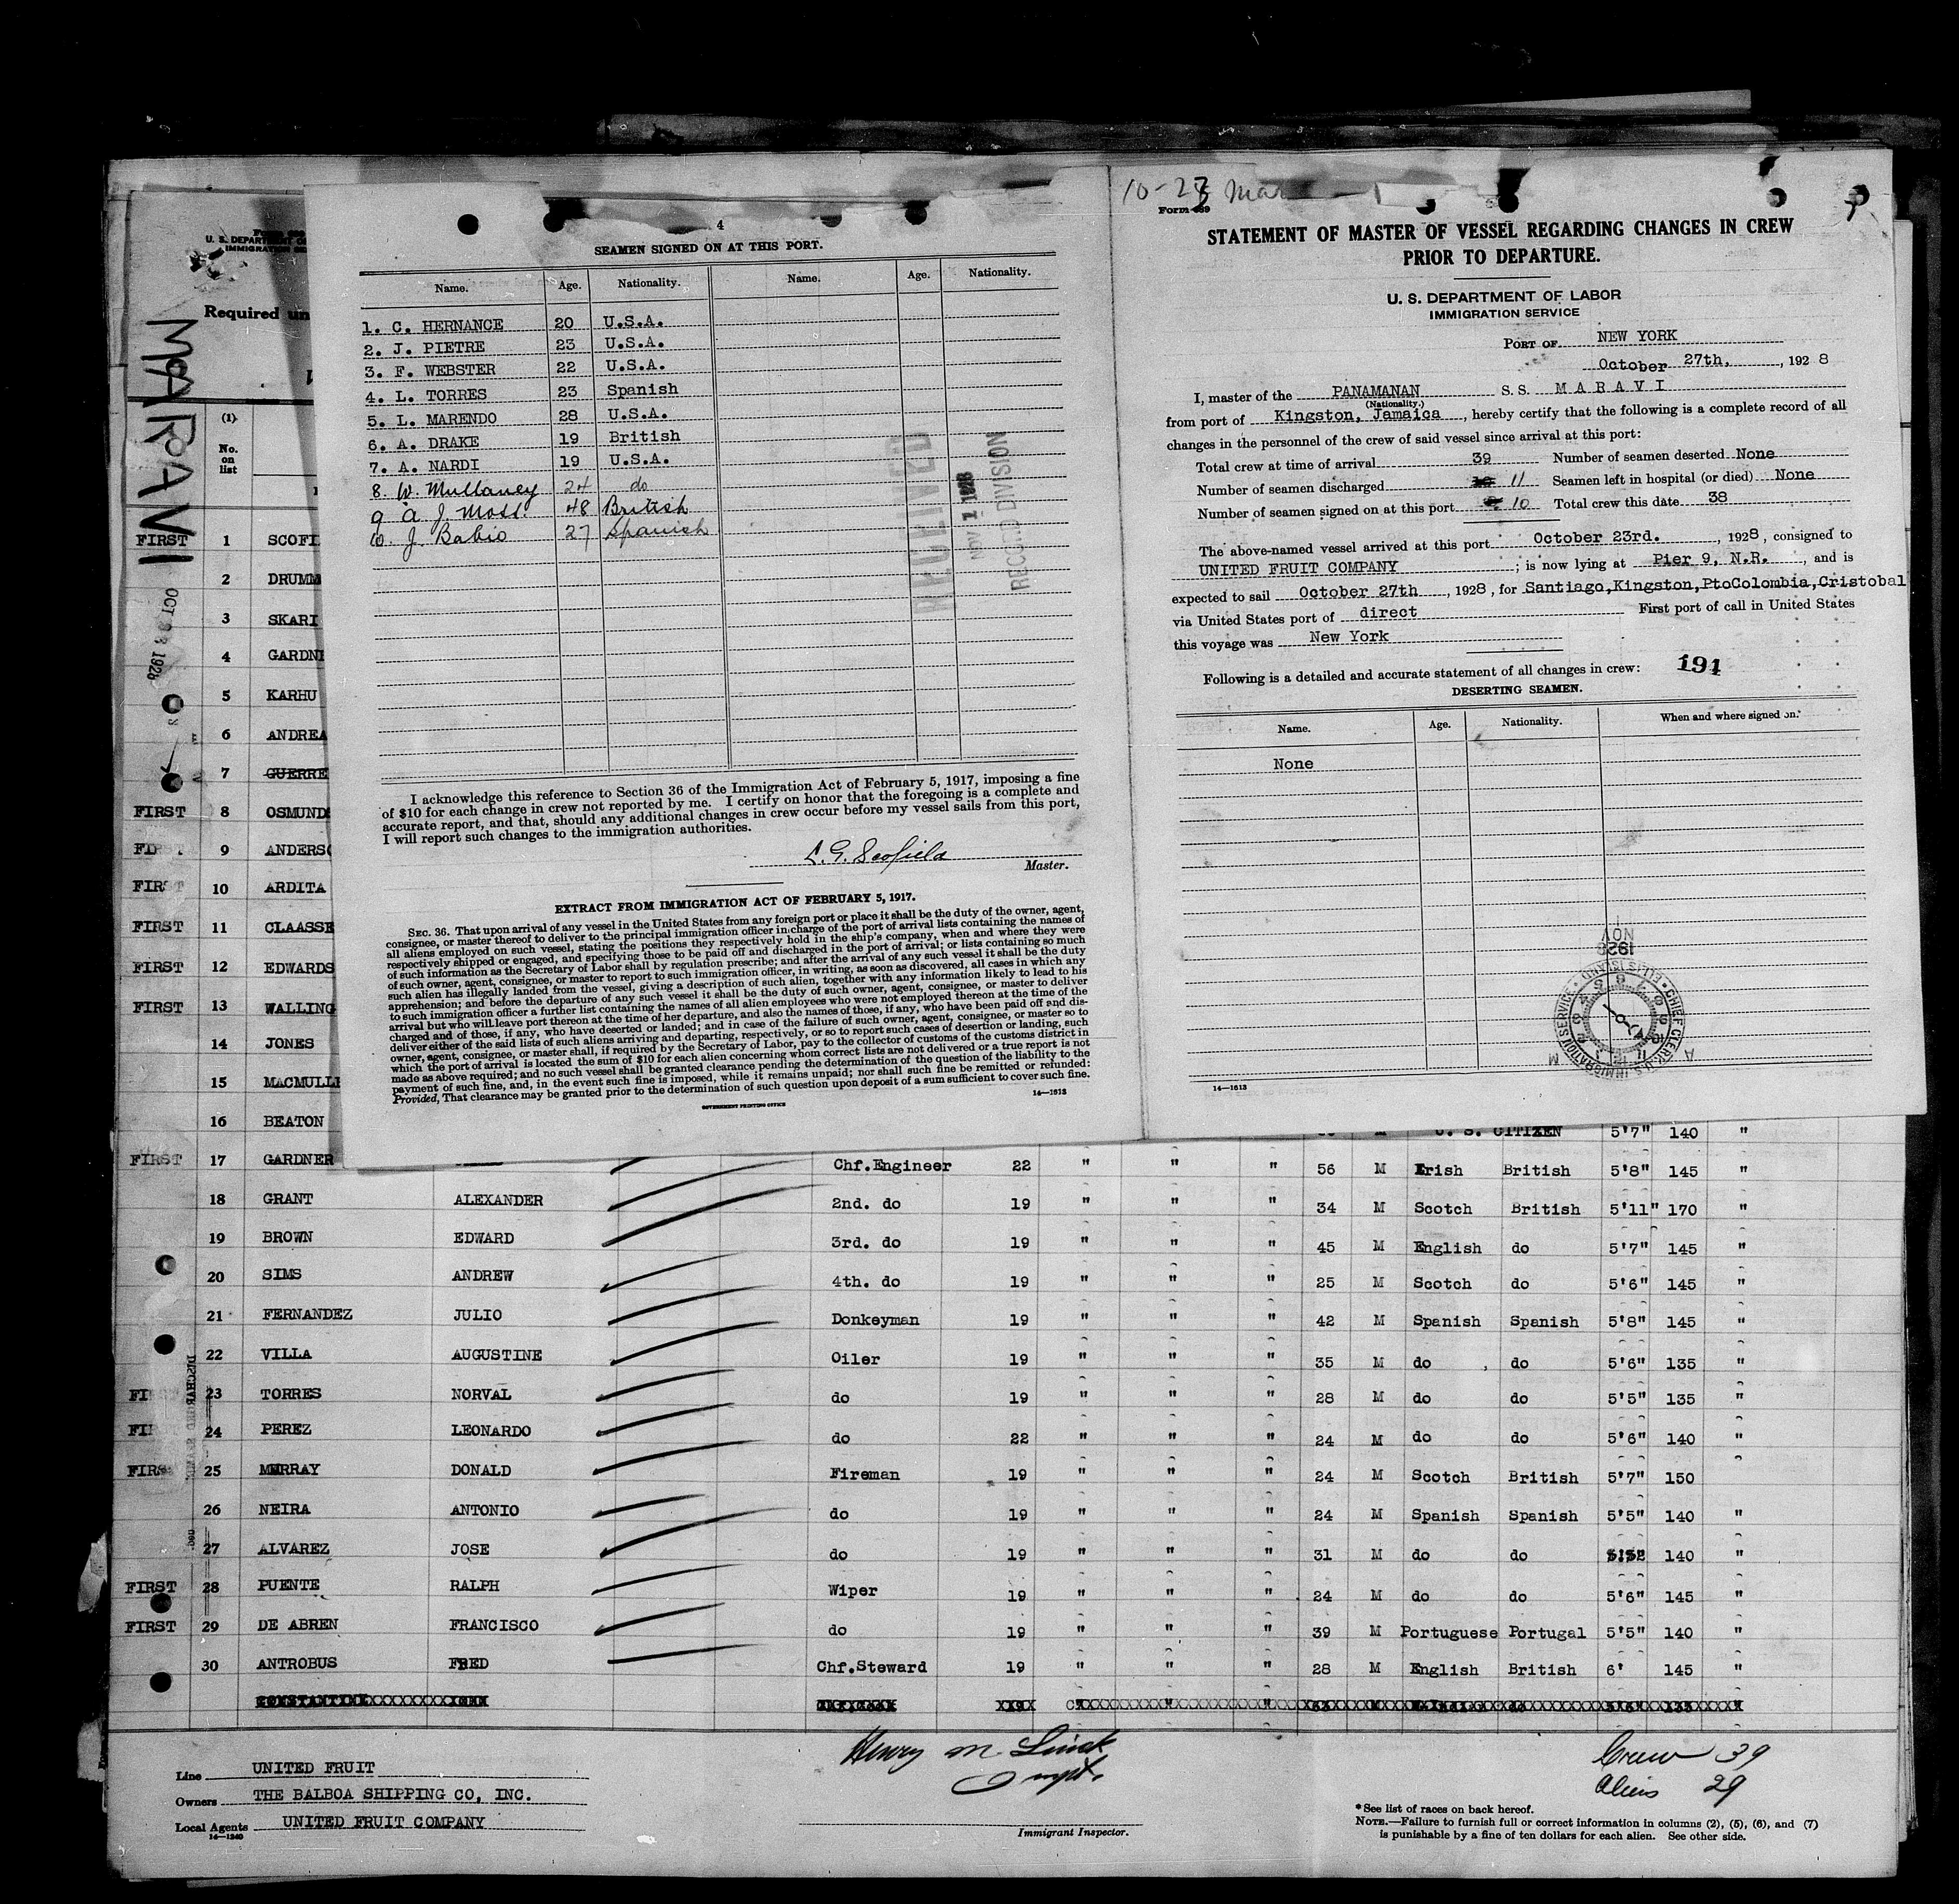 4
SEAMEN SIGNED ON AT THIS PORT.
Name. Age. Nationality. Name. Age. Nationality.
1. C. HERNANCE 20 U.S.A.
2. J. PIETRE 23 U.S.A.
3. F. WEBSTER 22 U.S.A.
4. L. TORRES 23 Spanish
5. L. MARENDO 28 U.S.A.
6. A. DRAKE 19 British
7. A. NARDI 19 U.S.A.
8. W. Mullaney 24 do
9 A J. Moss. 48 British
10. J. Babio 27 Spanish
RECEIVED
NOV 1 1928
RECORD DIVISION
I acknowledge this reference to Section 36 of the Immigration Act of February 5, 1917, imposing a fine
of $10 for each change in crew not reported by me. I certify on honor that the foregoing is a complete and
accurate report, and that, should any additional changes in crew occur before my vessel sails from this port,
I will report such changes to the immigration authorities.
L. G. Scofield
Master.
EXTRACT FROM IMMIGRATION ACT OF FEBRUARY 5, 1917.
SEC. 36. That upon arrival of any vessel in the United States from any foreign port or place it shall be the duty of the owner, agent,
consignee, or master thereof to deliver to the principal immigration officer in charge of the port of arrival lists containing the names of
all aliens employed on such vessel, stating the positions they respectively hold in the ship's company, when and where they were
respectively shipped or engaged, and specifying those to be paid off and discharged in the port of arrival; or lists containing so much
of such information as the Secretary of Labor shall by regulation prescribe; and after the arrival of any such vessel it shall be the duty
of such owner, agent, consignee, or master to report to such immigration officer, in writing, as soon as discovered, all cases in which any
such alien has illegally landed from the vessel, giving a description of such alien, together with any information likely to lead to his
apprehension; and before the departure of any such vessel it shall be the duty of such owner, agent, consignee, or master to deliver
to such immigration officer a further list containing the names of all alien employees who were not employed thereon at the time of the
arrival but who will leave port thereon at the time of her departure, and also the names of those, if any, who have been paid off and dis-
charged and of those, if any, who have deserted or landed; and in case of the failure of such owner, agent, consignee, or master so to
deliver either of the said lists of such aliens arriving and departing, respectively, or so to report such cases of desertion or landing, such
owner, agent, consignee, or master shall, if required by the Secretary of Labor, pay to the collector of customs of the customs district in
which the port of arrival is located the sum of $10 for each alien concerning whom correct lists are not delivered or a true report is not
made as above required; and no such vessel shall be granted clearance pending the determination of the question of the liability to the
payment of such fine, and, in the event such fine is imposed, while it remains unpaid; nor shall such fine be remitted or refunded:
Provided, That clearance may be granted prior to the determination of such question upon deposit of a sum sufficient to cover such fine.
GOVERNMENT PRINTING OFFICE 14—1613
10-23
Form 689
STATEMENT OF MASTER OF VESSEL REGARDING CHANGES IN CREW
PRIOR TO DEPARTURE.
U. S. DEPARTMENT OF LABOR
IMMIGRATION SERVICE
PORT OF NEW YORK
October 27th, , 1928
I, master of the PANAMANAN S. S. MARAVI
(Nationality.)
from port of Kingston, Jamaica, hereby certify that the following is a complete record of all
changes in the personnel of the crew of said vessel since arrival at this port:
Total crew at time of arrival 39 Number of seamen deserted None
Number of seamen discharged 11 Seamen left in hospital (or died) None
Number of seamen signed on at this port 10 Total crew this date 38
The above-named vessel arrived at this port October 23rd. , 1928, consigned to
UNITED FRUIT COMPANY ; is now lying at Pier 9, N.R. , and is
expected to sail October 27th , 1928, for Santiago,Kingston,PtoColombia,Cristobal
via United States port of direct First port of call in United States
this voyage was New York
Following is a detailed and accurate statement of all changes in crew: 191
DESERTING SEAMEN.
Name. Age. Nationality. When and where signed on.
None
NOV
1928
CHIEF CLERK U.S. IMMIGRATION SERVICE ELLIS ISLAND
14—1613
U. S. DEPARTMENT O
IMMIGRATION SE
Required un
MARAVI
OCT 23 1928
(1)
No. on list
FIRST 1 SCOFI
2 DRUMM
3 SKARI
4 GARDNE
5 KARHU
6 ANDREA
7 GUERRE
FIRST 8 OSMUNDS
FIRST 9 ANDERSO
FIRST 10 ARDITA
FIRST 11 CLAASSE
FIRST 12 EDWARDS
FIRST 13 WALLING
14 JONES
15 MACMULL
16 BEATON U. S. CITIZEN 5'7" 140 "
FIRST 17 GARDNER Chf.Engineer 22 " " " 56 M Irish British 5'8" 145 "
18 GRANT ALEXANDER 2nd. do 19 " " " 34 M Scotch British 5'11" 170 "
19 BROWN EDWARD 3rd. do 19 " " " 45 M English do 5'7" 145 "
20 SIMS ANDREW 4th. do 19 " " " 25 M Scotch do 5'6" 145 "
21 FERNANDEZ JULIO Donkeyman 19 " " " 42 M Spanish Spanish 5'8" 145 "
22 VILLA AUGUSTINE Oiler 19 " " " 35 M do do 5'6" 135 "
FI 23 TORRES NORVAL do 19 " " " 28 M do do 5'5" 135 "
FI 24 PEREZ LEONARDO do 22 " " " 24 M do do 5'6" 140 "
FIRS 25 MURRAY DONALD Fireman 19 " " " 24 M Scotch British 5'7" 150
26 NEIRA ANTONIO do 19 " " " 24 M Spanish Spanish 5'5" 140 "
27 ALVAREZ JOSE do 19 " " " 31 M do do 140 "
FIRST 28 PUENTE RALPH Wiper 19 " " " 24 M do do 5'6" 145 "
FIRST 29 DE ABREN FRANCISCO do 19 " " " 39 M Portuguese Portugal 5'5" 140 "
30 ANTROBUS FRED Chf.Steward 19 " " " 28 M English British 6' 145 "
Line UNITED FRUIT
Owners THE BALBOA SHIPPING CO, INC.
Local Agents UNITED FRUIT COMPANY
14—1240
Henry M.
Immigrant Inspector.
Crew 39
Aliens 29
* See list of races on back hereof.
NOTE.—Failure to furnish full or correct information in columns (2), (5), (6), and (7)
is punishable by a fine of ten dollars for each alien. See other side.